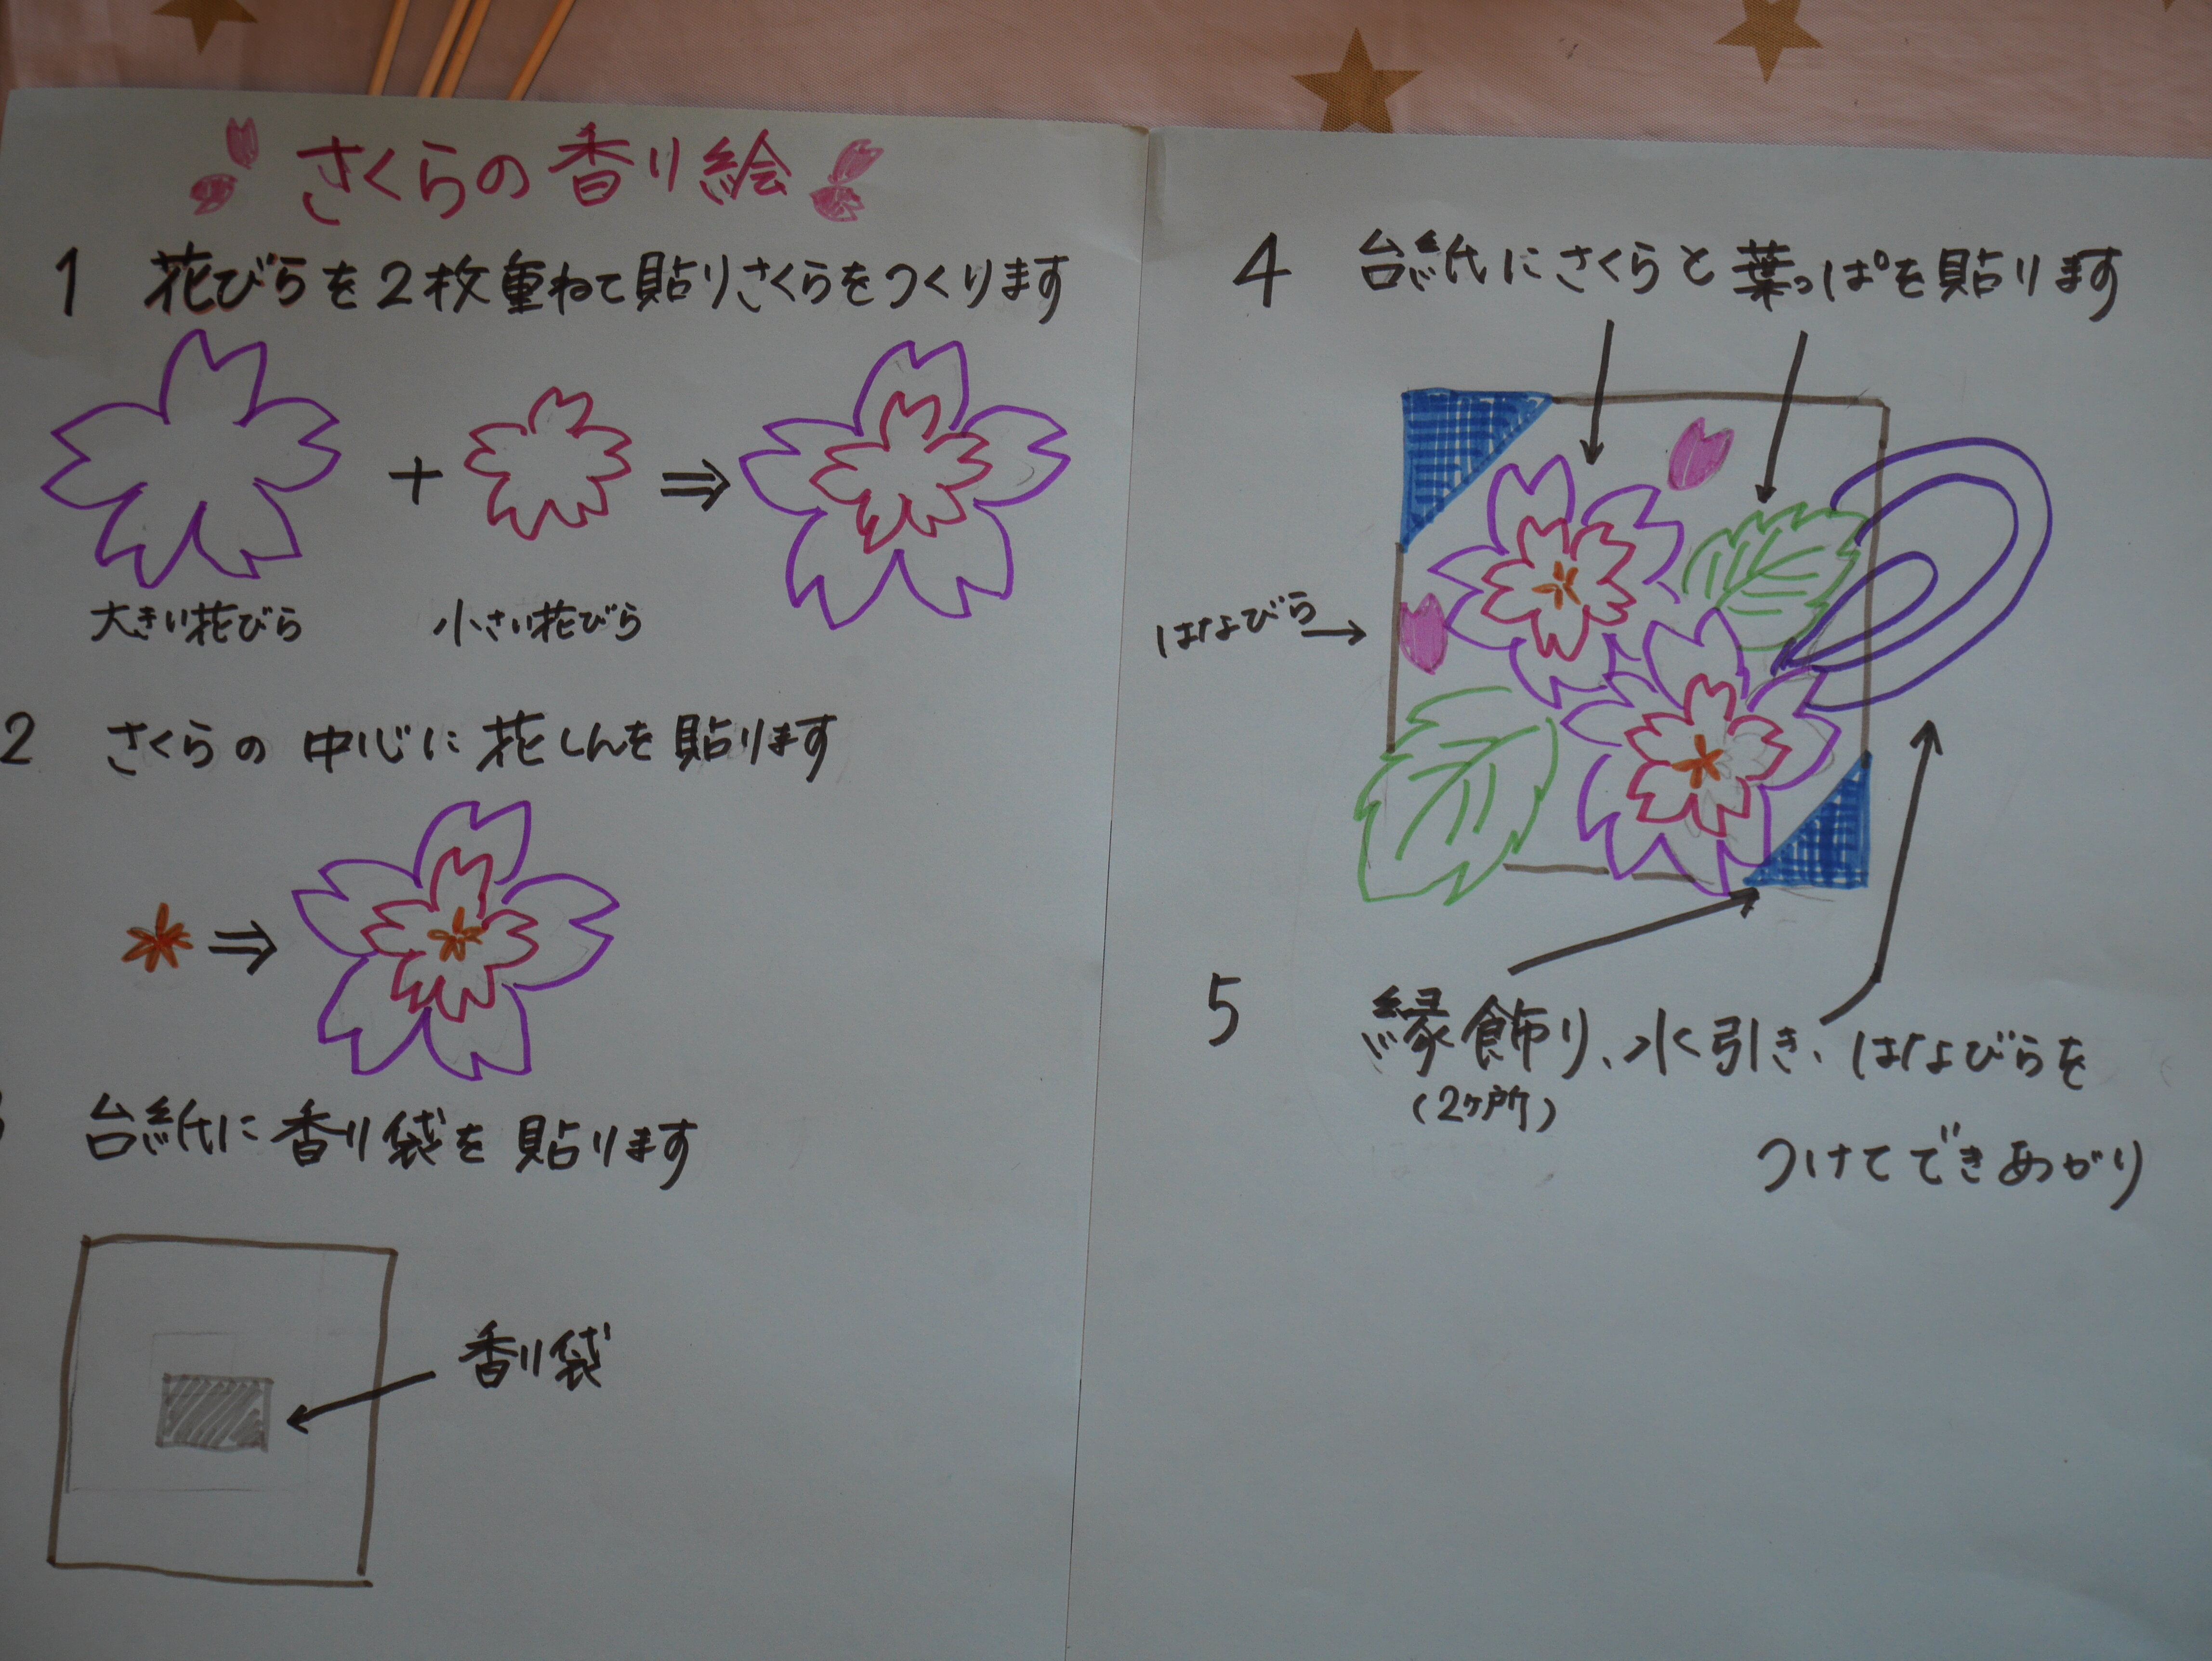 さくらの香り絵
1 花びらを2枚重ねて貼りさくらをつくります
大きい花びら
小さい花びら
2 さくらの中心に花しんを貼ります
台紙に香り袋を貼ります
香り袋
4 台紙にさくらと葉っぱを貼ります
はなびら
5 縁飾り、水引き、はなびらを
(2ヶ所)
つけてできあがり